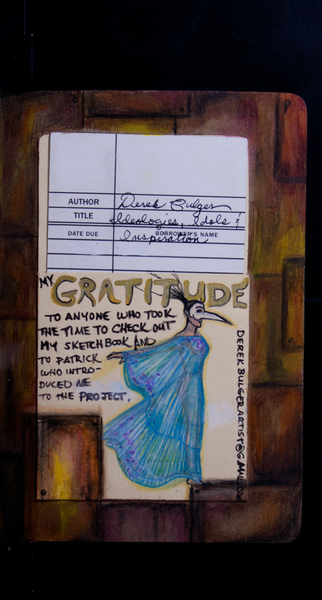 AUTHOR Derek Bulger
TITLE Ideologies, Idols &
DATE DUE BORROWER'S NAME
Inspiration
MY GRATITUDE
TO ANYONE WHO TOOK
THE TIME TO CHECK OUT
MY SKETCHBOOK AND
TO PATRICK
WHO INTRO-
DUCED ME
TO THE PROJECT.
DEREK.BULGER.ARTIST@GMAIL.COM